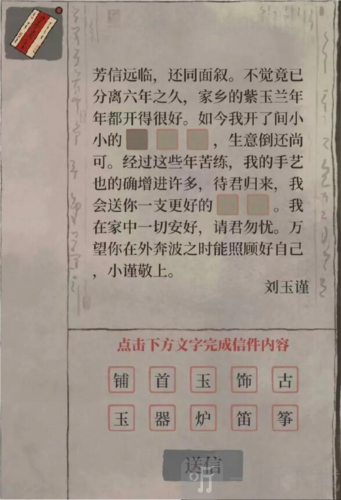 芳信远临，还同面叙。不觉竟已
分离六年之久，家乡的紫玉兰年
年都开得很好。如今我开了间小
小的，生意倒还尚
可。经过这些年苦练，我的手艺
也的确增进许多，待君归来，我
会送你一支更好的。我
在家中一切安好，请君勿忧。万
望你在外奔波之时能照顾好自己
，小谨敬上。
刘玉谨
点击下方文字完成信件内容
铺 首 玉 饰 古
玉 器 炉 笛 筝
送信